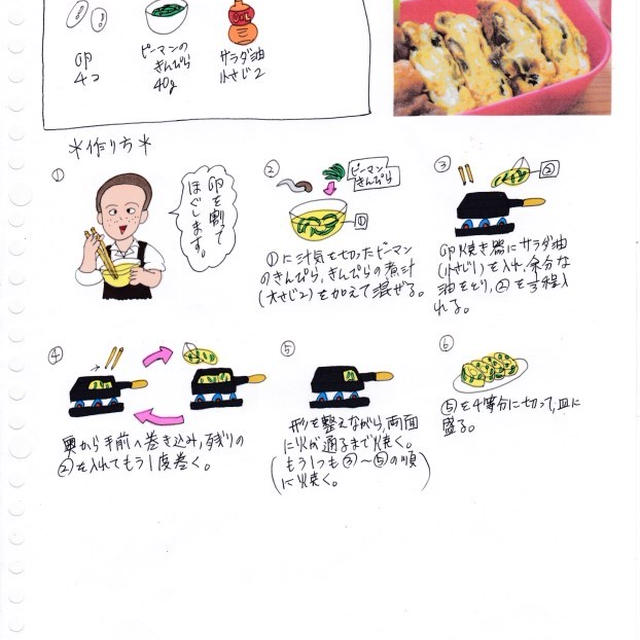 卵
4コ
ピーマンの
きんぴら
40g
サラダ油
小さじ2
＊作り方＊
①
卵を割って
ほぐします。
②
ピーマン
きんぴら
①
①に汁気を切ったピーマン
のきんぴら、きんぴらの煮汁
(大さじ2)を加えて混ぜる。
③
②
卵焼き器にサラダ油
(小さじ1)を入れ、余分な
油をとり、②を3程入
れる。
④
奥から手前へ巻き込み、残りの
②を入れてもう1度巻く。
⑤
形を整えながら、両面
に火が通るまで焼く。
(もう1つも③～⑤の順
に焼く。)
⑥
⑤を4等分に切って、皿に
盛る。